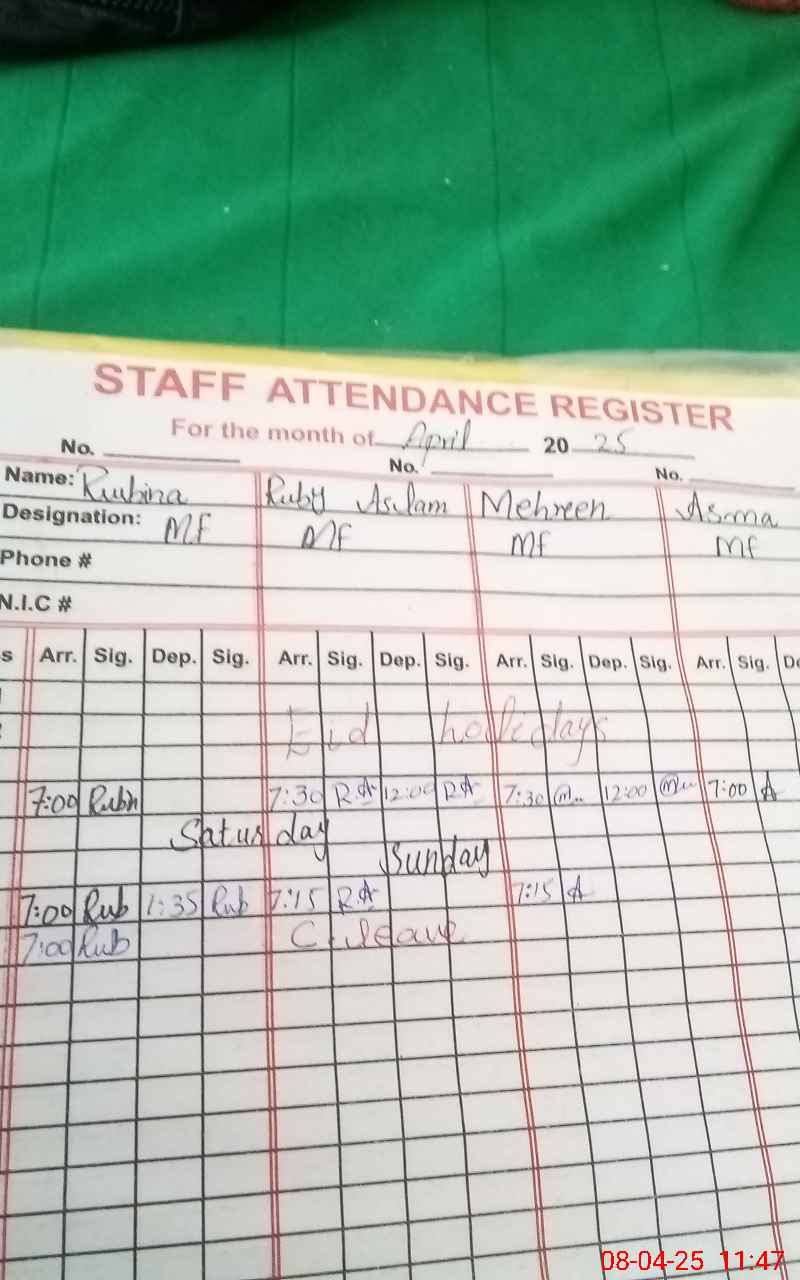 STAFF ATTENDANCE REGISTER
For the month of April 20 25
No. No. No.
Name: Rubina Ruby Aslam Mehreen Asma
Designation: MF MF MF MF
Phone #
N.I.C #
s Arr. Sig. Dep. Sig. Arr. Sig. Dep. Sig. Arr. Sig. Dep. Sig. Arr. Sig. De
Eid holidays
7:00 Rubn 7:30 RA 12:00 RA 7:30 12:00 7:00 A
Saturday
Sunday
7:00 Rub 1:35 Rub 7:15 RA 7:15 A
7:00 Rub C. leave
08-04-25 11:47